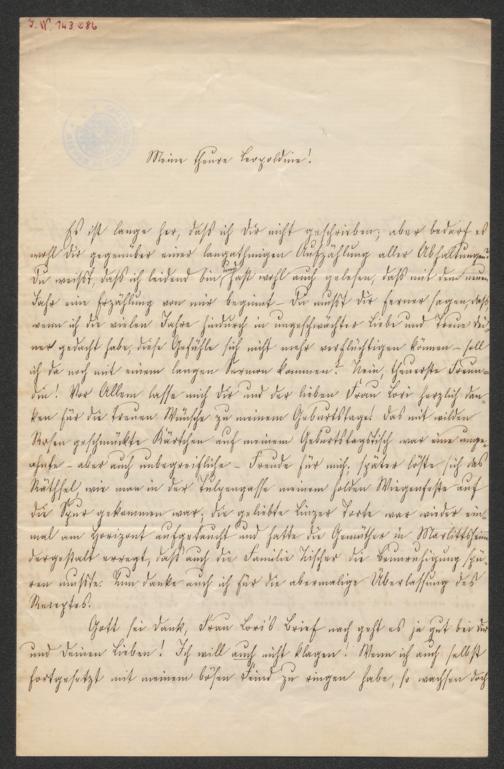 J. N. 143.086
Meine theure Leopoldine!
Es ist lange her, daß ich Dir nicht geschrieben; aber bedarf es
wohl Dir gegenüber einer langathmigen Aufzählung aller Abhaltungen?
Du weißt, daß ich leidend bin, hast wohl auch gelesen, daß mit dem neuen
Jahr eine Erzählung von mir beginnt. Du mußt Dir ferner sagen, daß
wenn ich die vielen Jahre hindurch in ungeschwächter Liebe und Treue Dei-
ner gedacht habe, diese Gefühle sich nicht mehr verflüchtigen können – soll
ich da noch mit einem langen Sermon kommen? Nein, theuerste Freun-
din! Vor Allem lasse mich Dir und der lieben Frau Lori herzlich dan-
ken für die treuen Wünsche zu meinem Geburtstage! Das mit wilden
Rosen geschmückte Kärtchen auf meinem Geburtstagstisch war eine unge-
ahnte – aber auch unbegreifliche – Freude für mich, später löste sich das
Räthsel, wie man in der Tulpengasse meinem holden Wiegenfeste auf
die Spur gekommen war; die geliebte Linzer Torte war wieder ein-
mal am Horizont aufgetaucht und hatte die Gemüther in Marlittsheim
dergestalt erregt, daß auch die Familie Tischer die Beunruhigung spü-
ren mußte. Nun danke auch ich für die abermalige Überlassung des
Rezeptes.
Gott sei Dank, Frau Loris Brief nach geht es ja gut bei Dir
und Deinen Lieben! Ich will auch nicht klagen! Wenn ich auch selbst
fortgesetzt mit meinem bösen Feind zu ringen habe, so wachsen doch